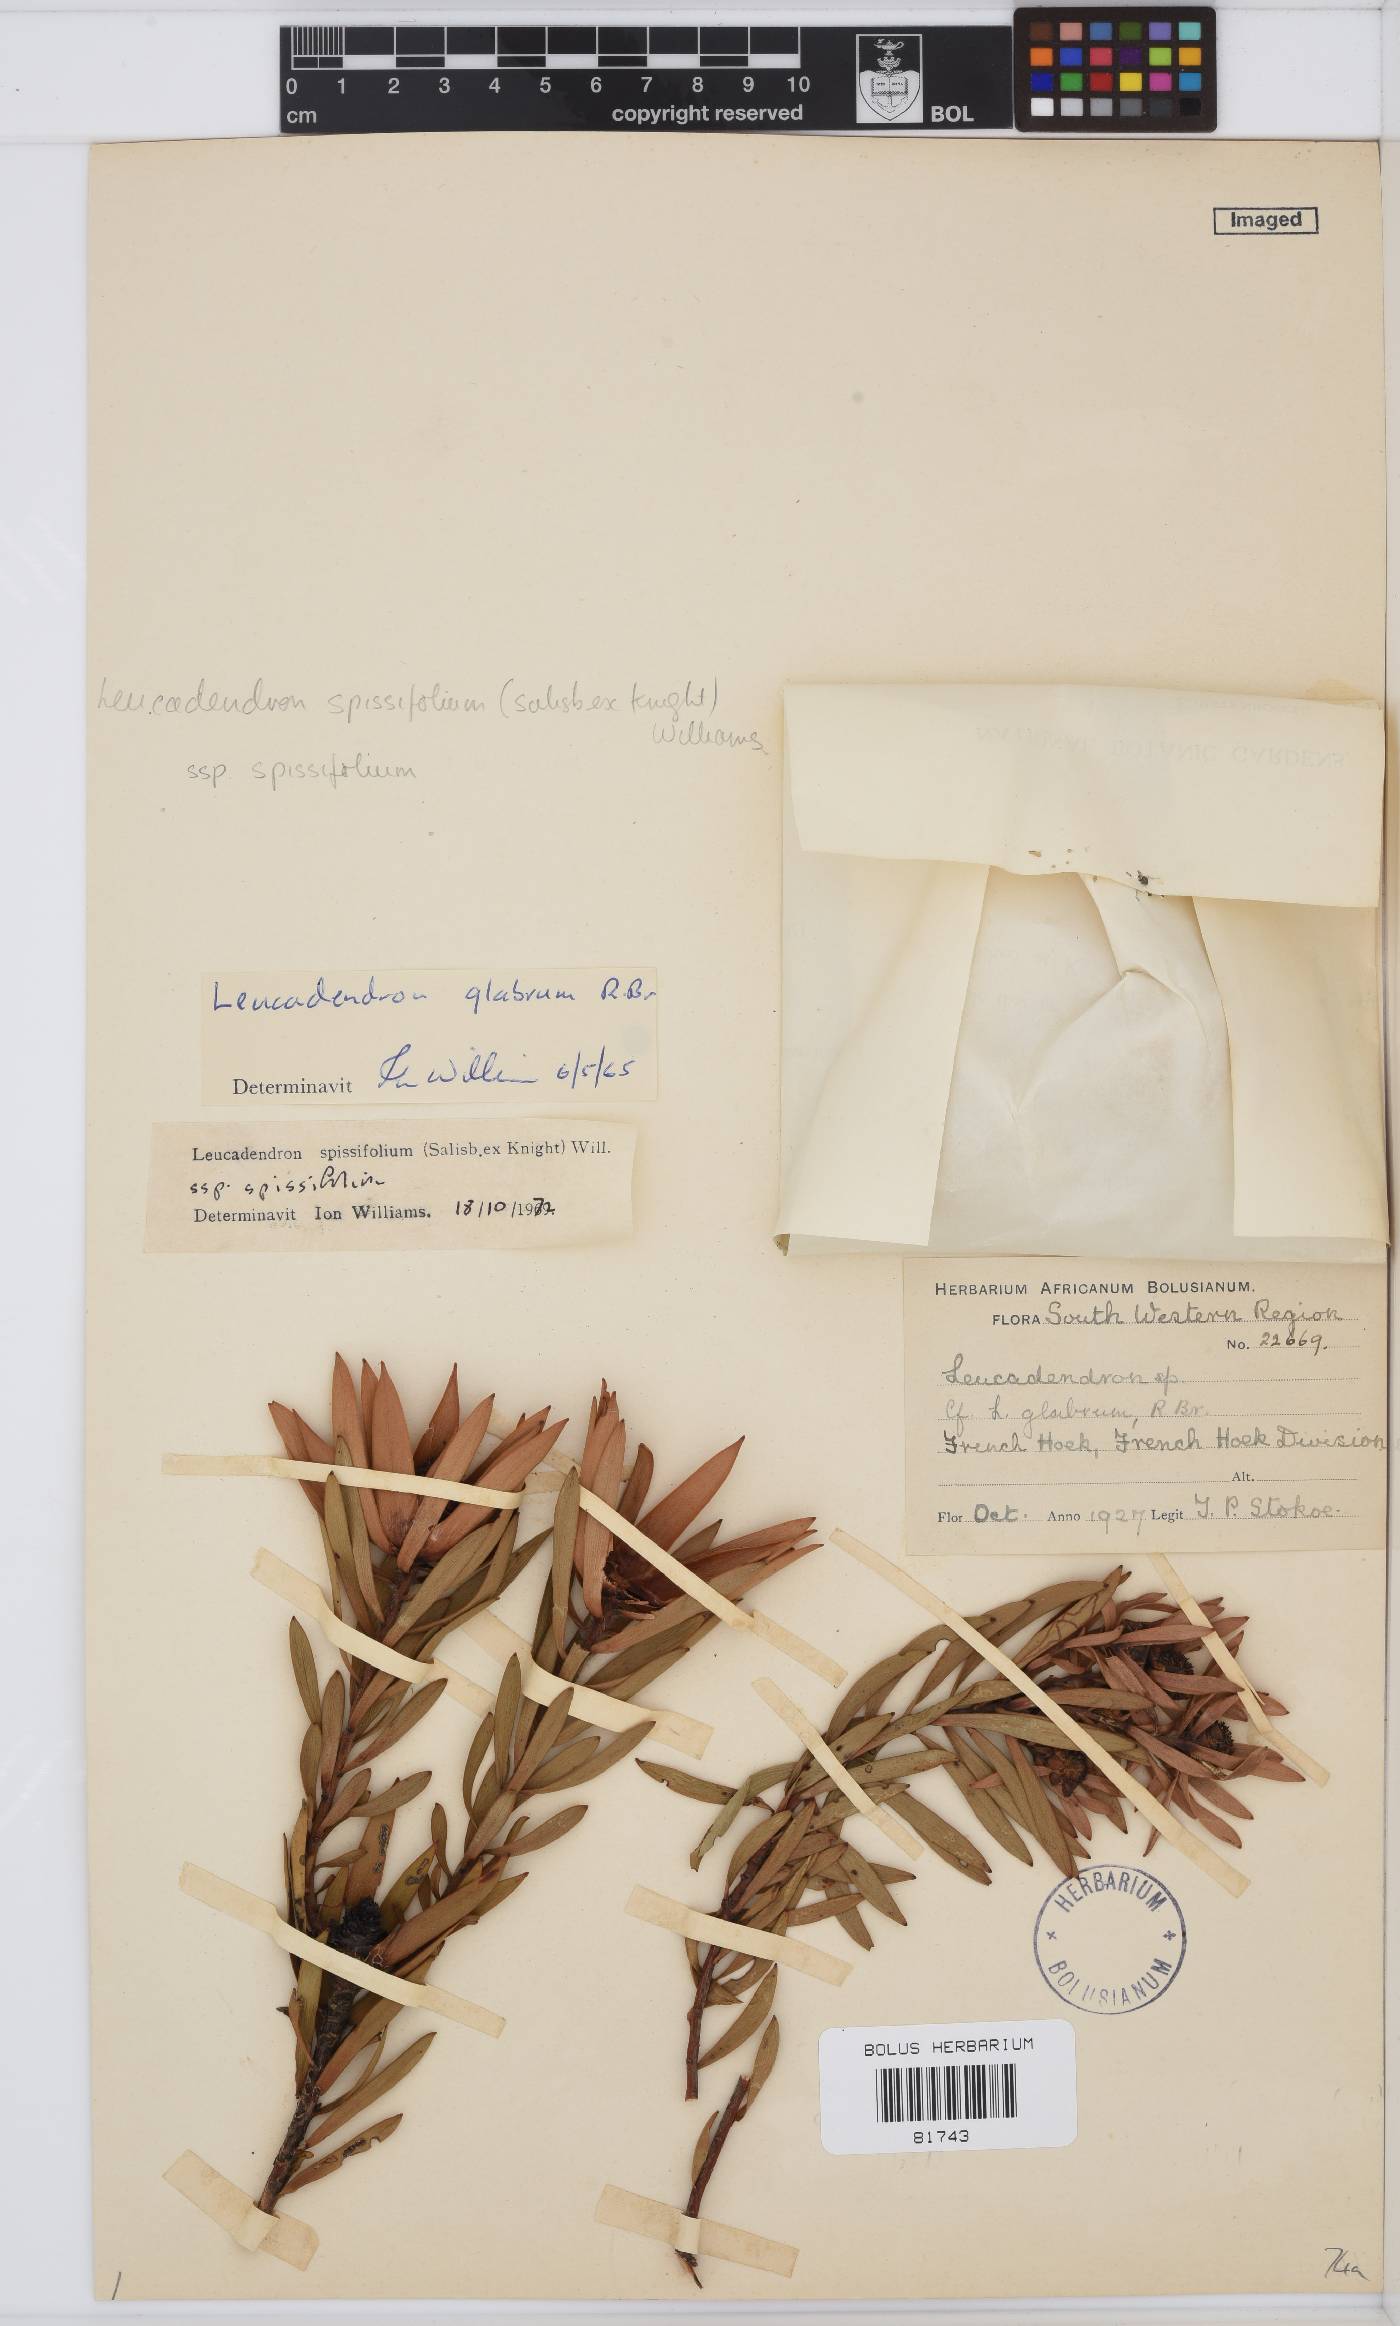 0 1 2 3 4 5 6 7 8 9 10
cm copyright reserved BOL
Imaged
Leucadendron spissifolium (Salisb ex Knight)
Williams
ssp. spissifolium
NATIONAL BOTANIC GARDENS
Leucadendron glabrum R.Br
Determinavit Ion Williams 6/5/65
Leucadendron spissifolium (Salisb.ex Knight) Will.
ssp. spissifolium
Determinavit Ion Williams. 18/10/1972.
HERBARIUM AFRICANUM BOLUSIANUM.
FLORA South Western Region
No. 22669.
Leucadendron sp.
Cf. L. glabrum, R Br.
French Hoek, French Hoek Division
Alt.
Flor Oct. Anno 1927 Legit T. P. Stokoe.
HERBARIUM
BOLUSIANUM
BOLUS HERBARIUM
81743
74a
1